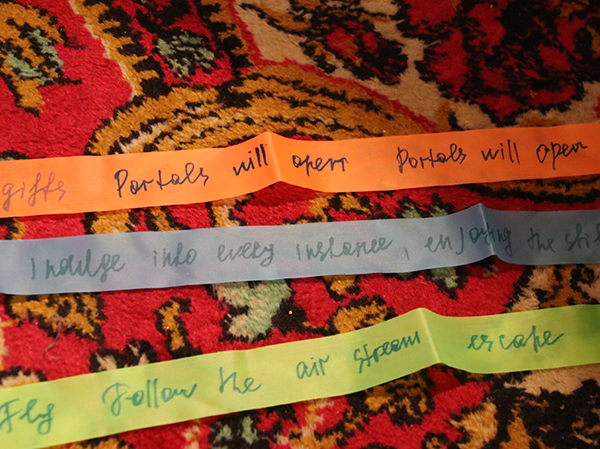 gifts Portals will open Portals will open
Indulge into every instance, enjoying the
Fly Follow the air stream escape